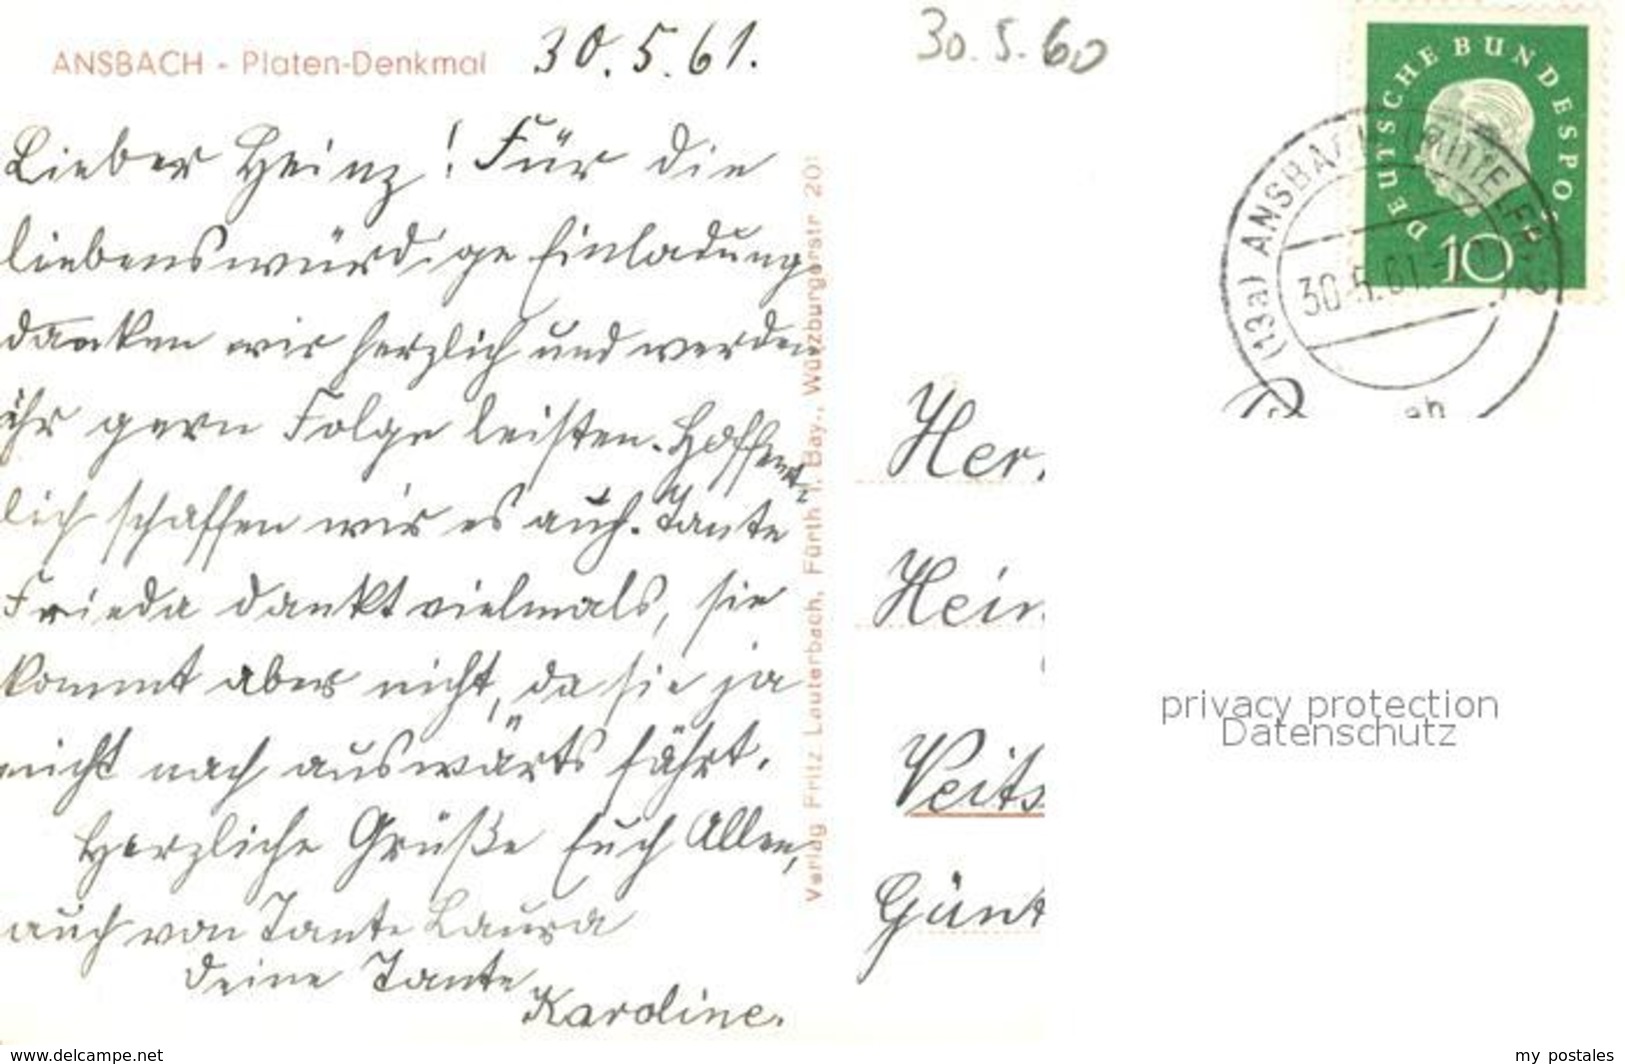 ANSBACH - Platen-Denkmal
30.5.61.
30.5.60
Lieber Heinz! Für die
liebenswürdige Einladung
danken wir herzlich und werden
ihr gern Folge leisten. Hoffent-
lich schaffen wir es auch. Tante
Frieda dankt vielmals, sie
kommt aber nicht, da sie ja
nicht nach auswärts fährt.
Herzliche Grüße Euch Allen,
auch von Tante Laura
Deine Tante
Karoline.
Verlag Fritz Lauterbach, Fürth i. Bay., Würzburgerstr. 201
DEUTSCHE BUNDESPOST
10
(13a) ANSBACH (MITTELFR)
30.5.61
Her
Hein
Veits
Günt
privacy protection
Datenschutz
www.delcampe.net
my_postales